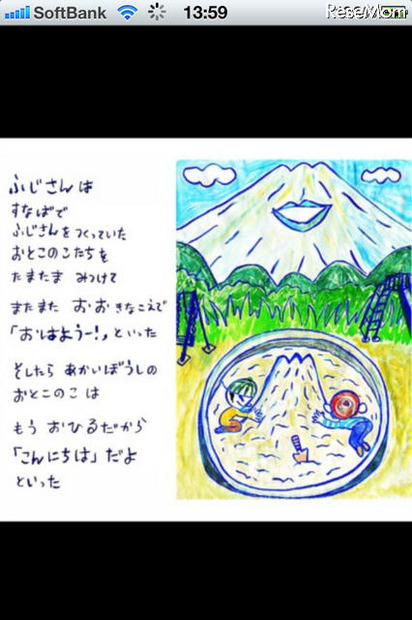 SoftBank 13:59
ReseMom
ふじさんは
すなばで
ふじさんをつくっていた
おとこのこたちを
たまたま みつけて
またまた おおきなこえで
「おはようー!」といった
そしたら あかいぼうしの
おとこのこ は
もう おひるだから
「こんにちは」だよ
といった